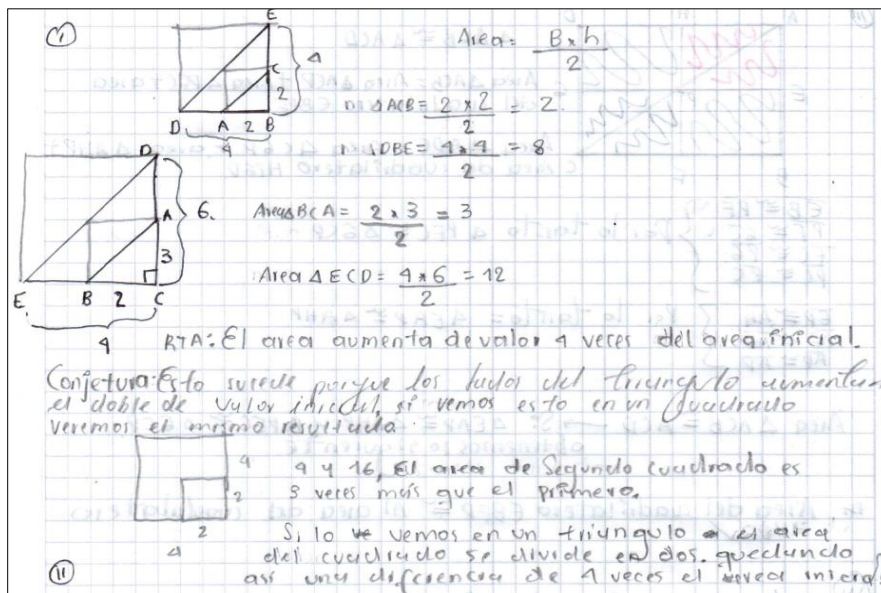 I
E
Area = B x h / 2
4
C
2
D A 2 B
4
ACB = 2 x 2 / 2 = 2
DBE = 4 x 4 / 2 = 8
D
6.
A
3
E B 2 C
4
Area△BCA = 2 x 3 / 2 = 3
Area △ ECD = 4 x 6 / 2 = 12
RTA: El area aumenta de valor 4 veces del area inicial.
Conjetura: Esto sucede porque los lados del triangulo aumentan
el doble de valor inicial, si vemos esto en un Cuadrado
veremos el mismo resultado.
4
2
2
4
4 y 16, El area de Segundo cuadrado es
veces mas que el primero.
Si lo vemos en un triangulo el area
del cuadrado se divide en dos. quedando
asi una diferencia de 4 veces el area inicial
II